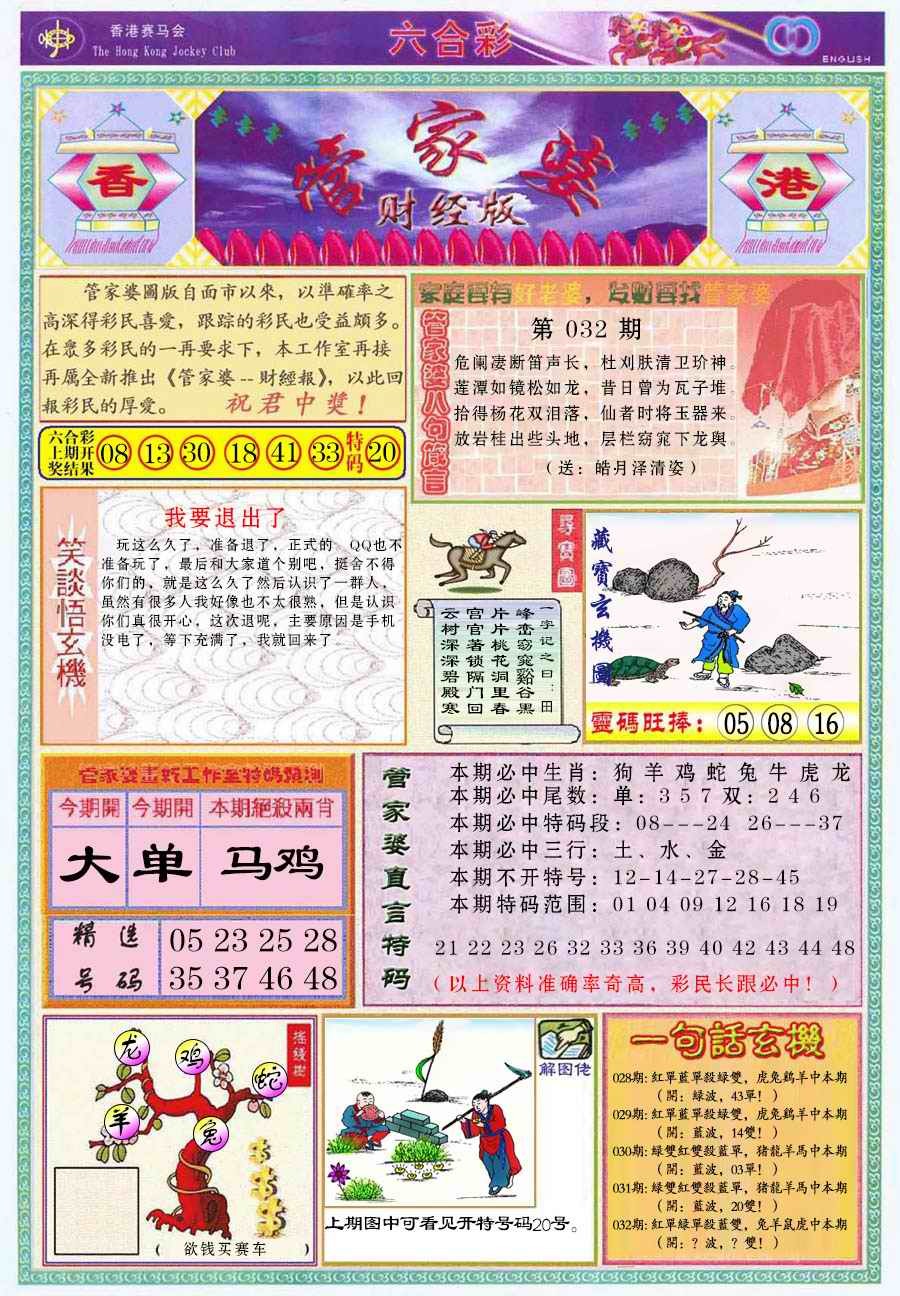 香港赛马会
The Hong Kong Jockey Club
六合彩
ENGLISH
香
管家婆
财经版
港
管家婆圖版自面市以來，以準確率之
高深得彩民喜愛，跟踪的彩民也受益頗多。
在眾多彩民的一再要求下，本工作室再接
再厲全新推出《管家婆--財經報》，以此回
報彩民的厚愛。 祝君中獎！
六合彩
上期开
奖结果
08 13 30 18 41 33 特码 20
家庭要有好老婆，发财要找管家婆
管家婆八句箴言
第 032 期
危阑凄断笛声长，杜刈肤清卫玠神。
莲潭如镜松如龙，昔日曾为瓦子堆。
拾得杨花双泪落，仙者时将玉器来。
放岩桂出些头地，层栏窈窕下龙舆。
（送：皓月泽清姿）
笑談悟玄機
我要退出了
玩这么久了，准备退了，正式的 QQ也不
准备玩了，最后和大家道个别吧，挺舍不得
你们的，就是这么久了然后认识了一群人，
虽然有很多人我好像也不太很熟，但是认识
你们真很开心，这次退呢，主要原因是手机
没电了，等下充满了，我就回来了
尋寶圖
一字记之曰：田
峰峦窈窕谿谷黑
片片桃花洞里春
宫官著锁隔门回
云树深深碧殿寒
藏寶玄機圖
靈碼旺捧： 05 08 16
今期開 今期開 本期絕殺兩肖
大 单 马鸡
精选号码
05 23 25 28
35 37 46 48
管家婆直言特码
本期必中生肖：狗 羊 鸡 蛇 兔 牛 虎 龙
本期必中尾数：单：3 5 7 双：2 4 6
本期必中特码段：08---24 26---37
本期必中三行：土、水、金
本期不开特号：12-14-27-28-45
本期特码范围：01 04 09 12 16 18 19
21 22 23 26 32 33 36 39 40 42 43 44 48
（以上资料准确率奇高，彩民长跟必中！）
搖錢樹
龙
鸡
蛇
羊
兔
（ 欲钱买赛车 ）
解图佬
上期图中可看见开特号码20号。
一句話玄機
028期：紅單藍單殺绿雙，虎兔鷄羊中本期
（開：緑波，43單！）
029期：紅單藍單殺緑雙，虎兔鷄羊中本期
（開：藍波，14雙！）
030期：緑雙紅雙殺藍單，猪龍羊馬中本期
（開：藍波，03單！）
031期：緑雙紅雙殺藍單，猪龍羊馬中本期
（開：藍波，20雙！）
032期：紅單緑單殺藍雙，兔羊鼠虎中本期
（開：？波，？雙！）